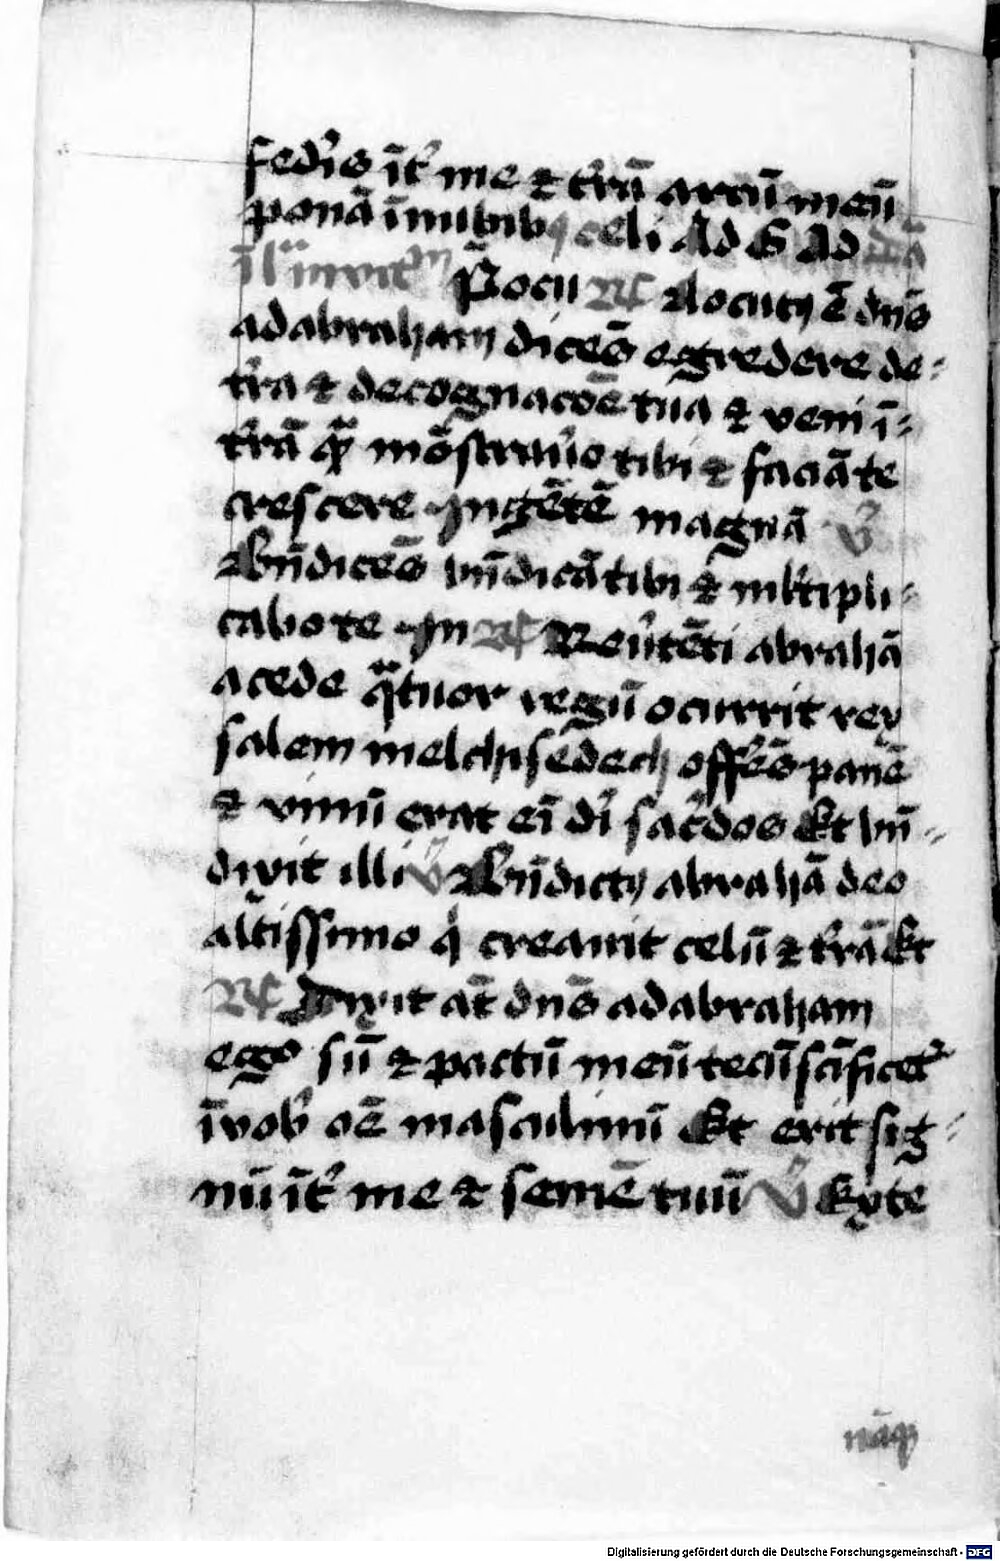 fedis īt' me ⁊ t'rā arcū meū
ponā ī nubibꝫ celi Ad S Ad
Pocu R͞ Locutꝫ ē dn̄s
ad abraham dicēs egredere de-
t'ra ⁊ de cognacōe tua ⁊ veni ī-
t'rā quā mōstrav'o tibi ⁊ faciā te
crescere In gētē magnā V̄
Bn̄dicēs bn̄dicā tibi ⁊ ml'tipli-
cabo te In R͞ Reu'tēti abrahā
a cede q̄tuor regū ocurrit rex
salem melchisedech offerēs panē
⁊ vinū erat eī di sac'dos Et bn̄-
dixit illi V̄ Bn̄dictꝫ abrahā deo
altissimo q' creauit celū ⁊ t'rā Et
R͞ Dixit at̄ dn̄s ad abraham
ego sū ⁊ pactū meū tecū sc̄ificet'
ī vob' oē masculinū Et erit sig-
nū īt' me ⁊ semē tuū V̄ Ex te
nāqꝫ
Digitalisierung gefördert durch die Deutsche Forschungsgemeinschaft - DFG